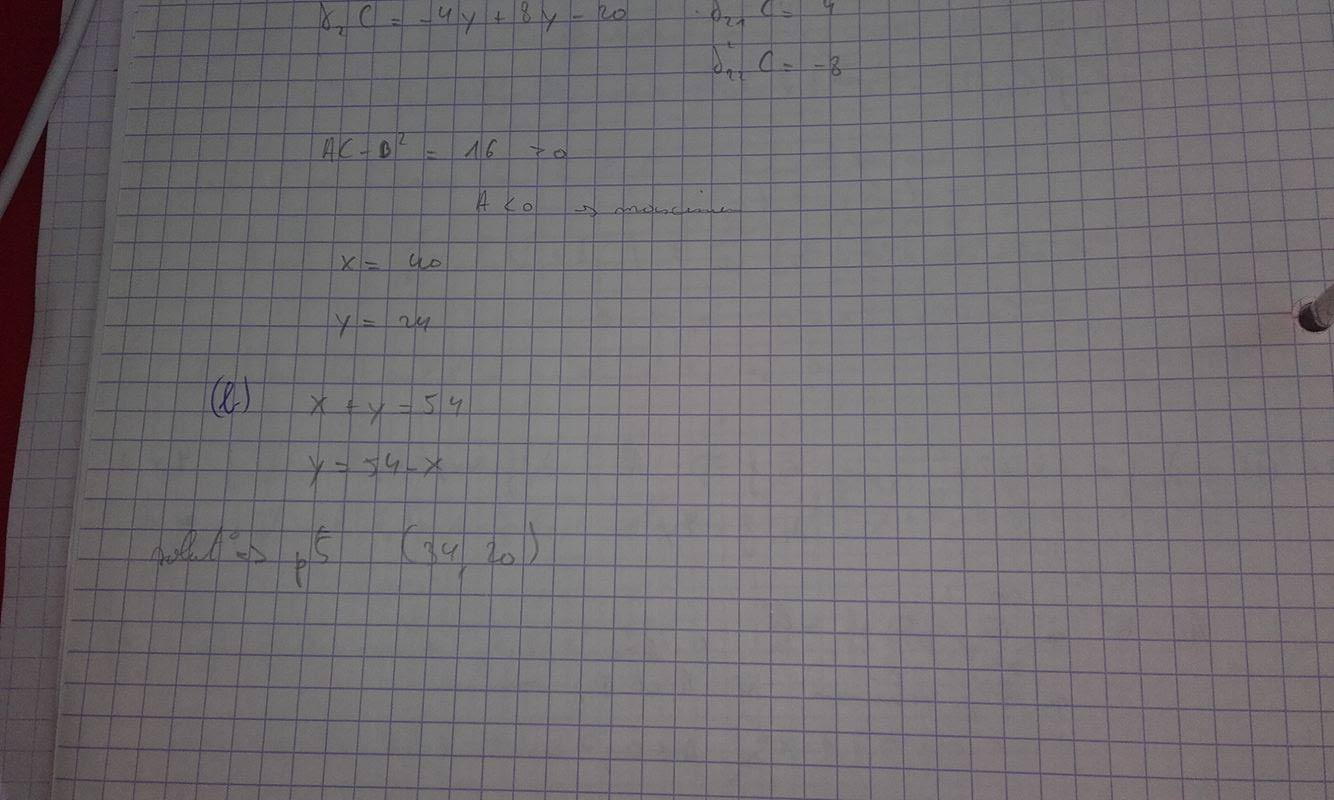 ∂₂ C = -4y + 8y - 20 ∂₂₁ C = 4
∂²₂₂ C = -8
AC - B² = 16 > 0
A < 0 → maximum
x = 40
y = 24
(b) x + y = 54
y = 54 - x
solut° → p5 (34, 20)